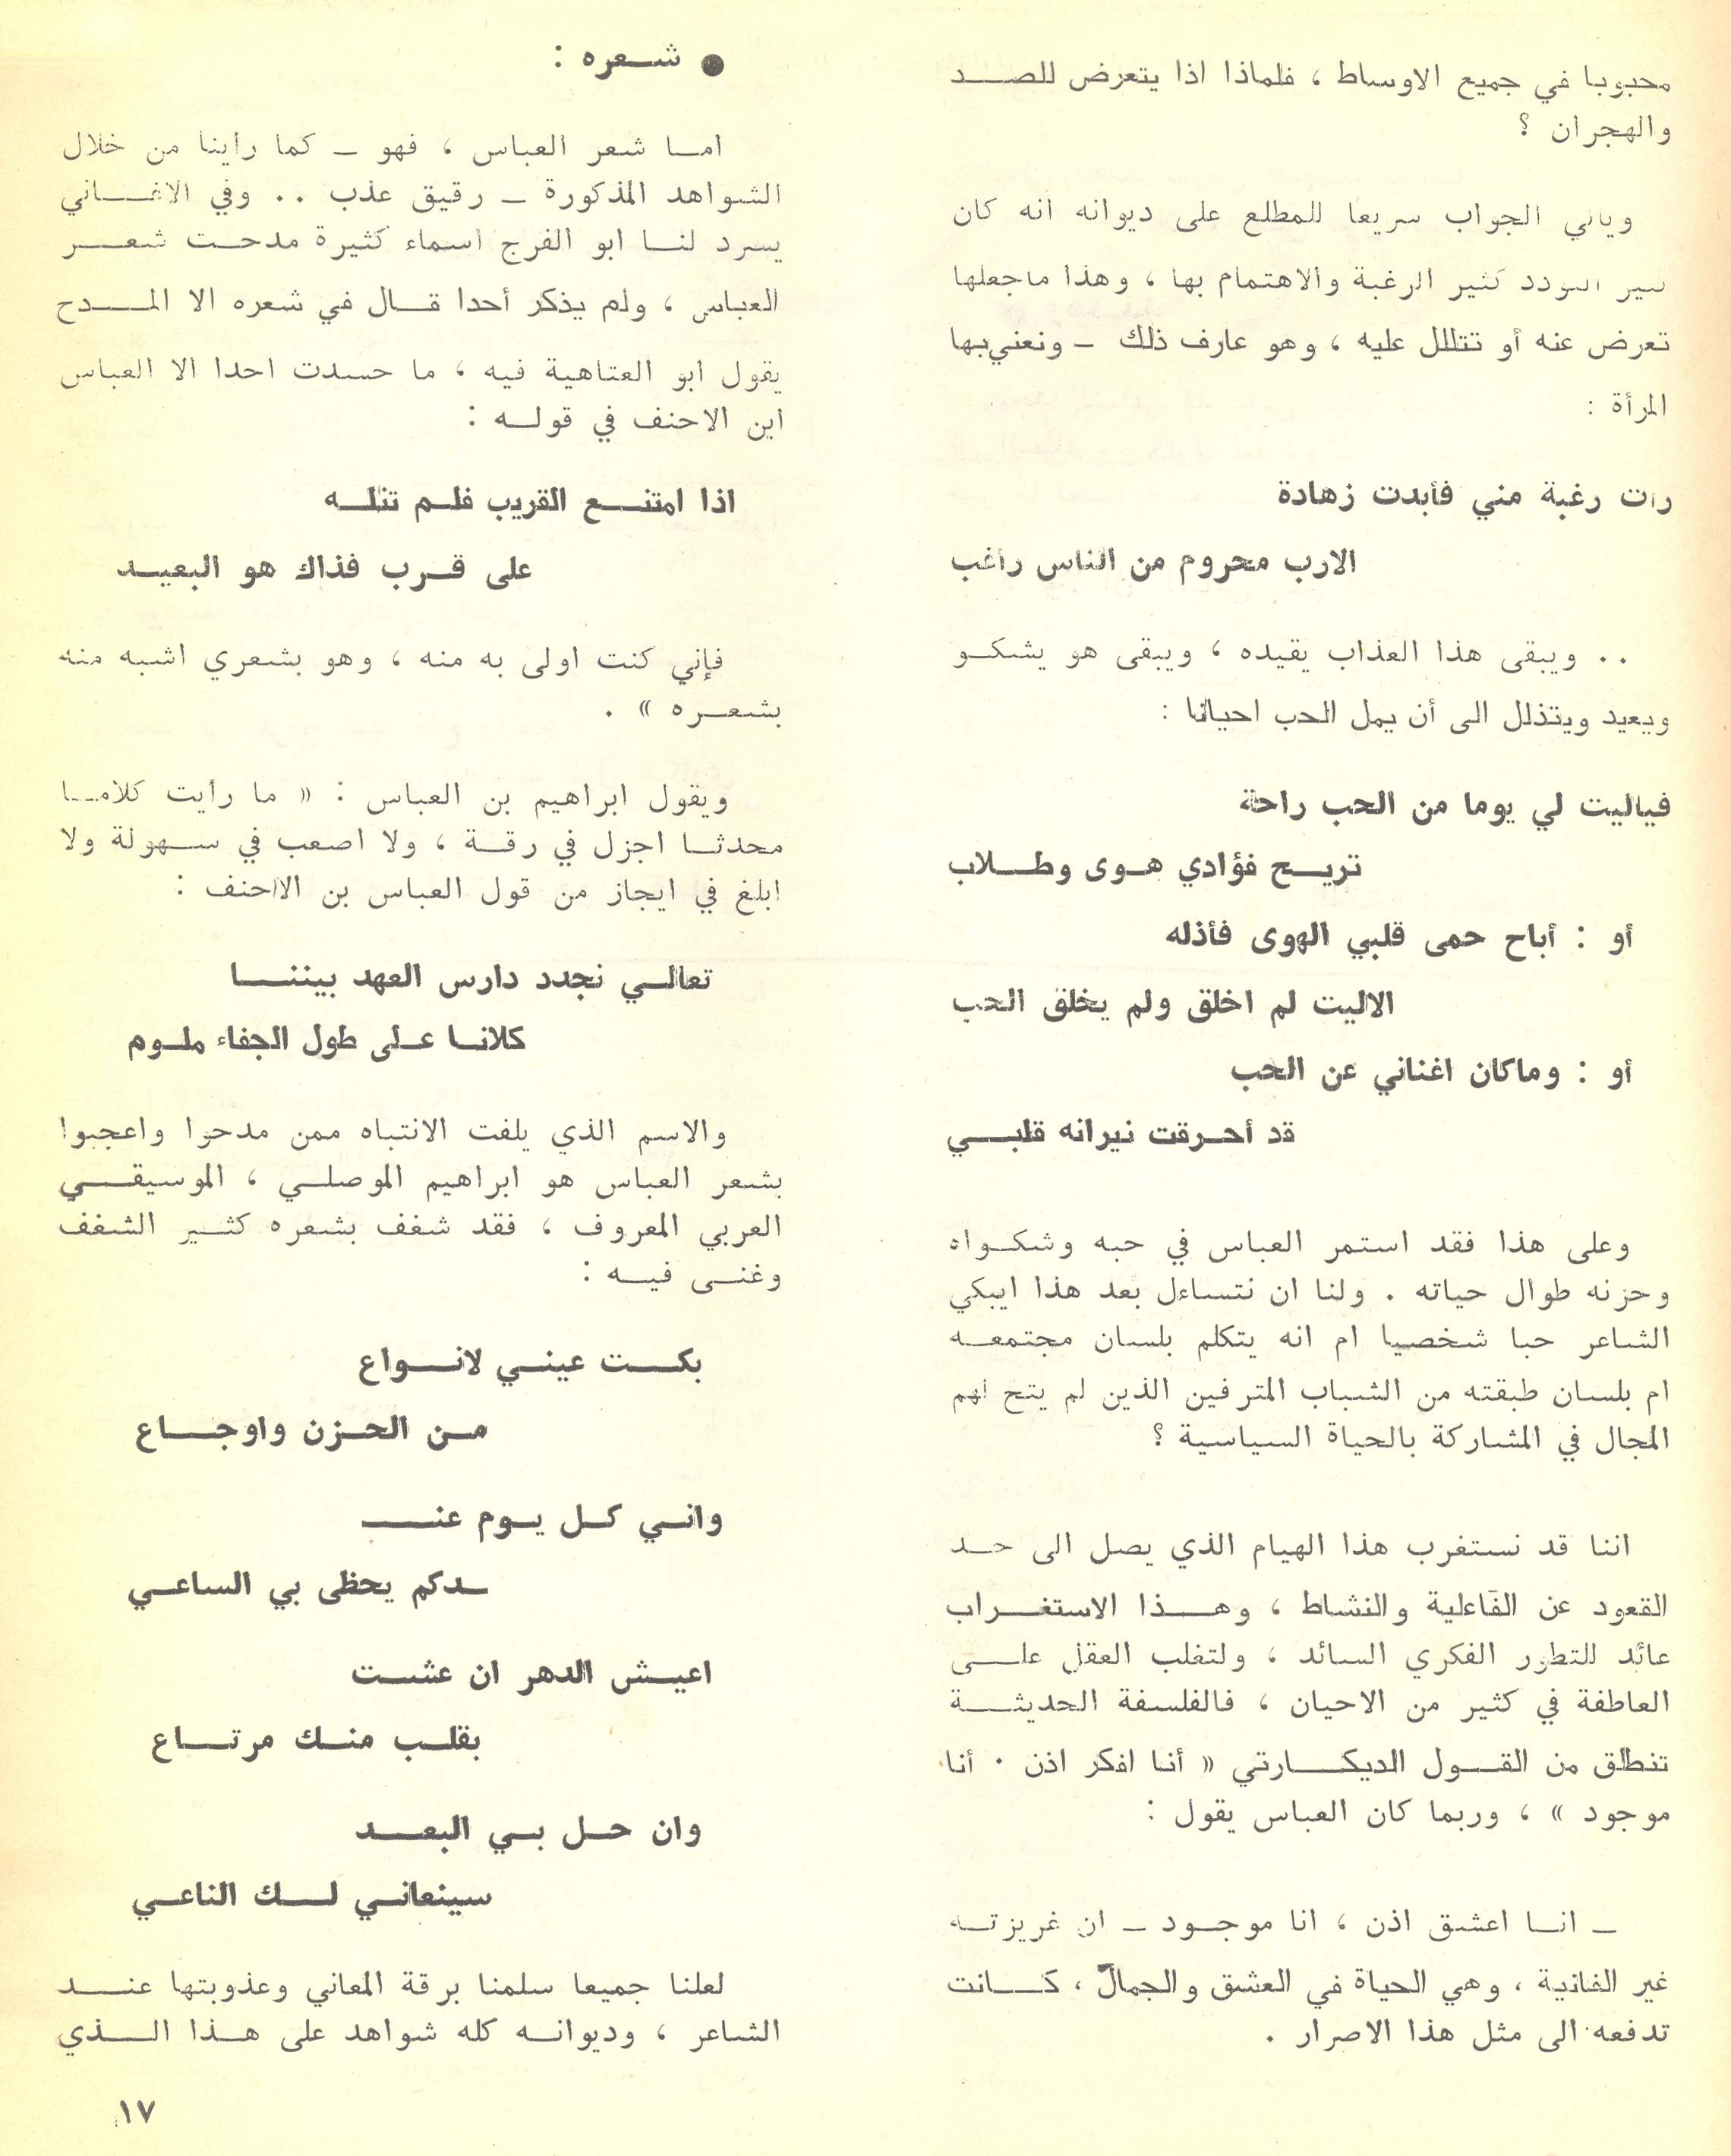 محبوبا في جميع الاوساط ، فلماذا اذا يتعرض للصد
والهجران ؟
وياتي الجواب سريعا للمطلع على ديوانه انه كان
التودد كثير الرغبة والاهتمام بها ، وهذا ماجعلها
تعرض عنه أو تتللل عليه ، وهو عارف ذلك – ونعني بها
المرأة :
رات رغبة مني فأبدت زهادة
الارب محروم من الناس راغب
. . ويبقى هذا العذاب يقيده ، ويبقى هو يشكو
ويعيد ويتذلل الى أن يمل الحب احيانا :
فياليت لي يوما من الحب راحة
تريح فؤادي هوى وطلاب
أو : أباح حمى قلبي الهوى فأذله
الاليت لم اخلق ولم يخلق الحب
أو : وماكان اغناني عن الحب
قد أحرقت نيرانه قلبي
وعلى هذا فقد استمر العباس في حبه وشكواه
وحزنه طوال حياته . ولنا ان نتساءل بعد هذا ايبكي
الشاعر حبا شخصيا ام انه يتكلم بلسان مجتمعه
ام بلسان طبقته من الشباب المترفين الذين لم يتح لهم
المجال في المشاركة بالحياة السياسية ؟
اننا قد نستغرب هذا الهيام الذي يصل الى حد
القعود عن الفاعلية والنشاط ، وهذا الاستغراب
عائد للتطور الفكري السائد ، ولتغلب العقل على
العاطفة في كثير من الاحيان ، فالفلسفة الحديثة
تنطلق من القول الديكارتي « أنا افكر اذن . أنا
موجود » ، وربما كان العباس يقول :
– انا اعشق اذن ، انا موجود – ان غريزته
غير الفانية ، وهي الحياة في العشق والجمال ، كانت
تدفعه الى مثل هذا الاصرار .
● شعره :
اما شعر العباس ، فهو – كما راينا من خلال
الشواهد المذكورة – رقيق عذب . . وفي الاغاني
يسرد لنا ابو الفرج اسماء كثيرة مدحت شعر
العباس ، ولم يذكر أحدا قال في شعره الا المدح
يقول ابو العتاهية فيه ، ما حسدت احدا الا العباس
ابن الاحنف في قوله :
اذا امتنع القريب فلم تنله
على قرب فذاك هو البعيد
فإني كنت اولى به منه ، وهو بشعري اشبه منه
بشعره » .
ويقول ابراهيم بن العباس : « ما رأيت كلاما
محدثا اجزل في رقة ، ولا اصعب في سهولة ولا
ابلغ في ايجاز من قول العباس بن الاحنف :
تعالي نجدد دارس العهد بيننا
كلانا على طول الجفاء ملوم
والاسم الذي يلفت الانتباه ممن مدحوا واعجبوا
بشعر العباس هو ابراهيم الموصلي ، الموسيقي
العربي المعروف ، فقد شغف بشعره كثير الشغف
وغنى فيه :
بكت عيني لانواع
من الحزن واوجاع
واني كل يوم عنـ
ـدكم يحظى بي الساعي
اعيش الدهر ان عشت
بقلب منك مرتاع
وان حل بي البعد
سينعاني لك الناعي
لعلنا جميعا سلمنا برقة المعاني وعذوبتها عند
الشاعر ، وديوانه كله شواهد على هذا الذي
١٧